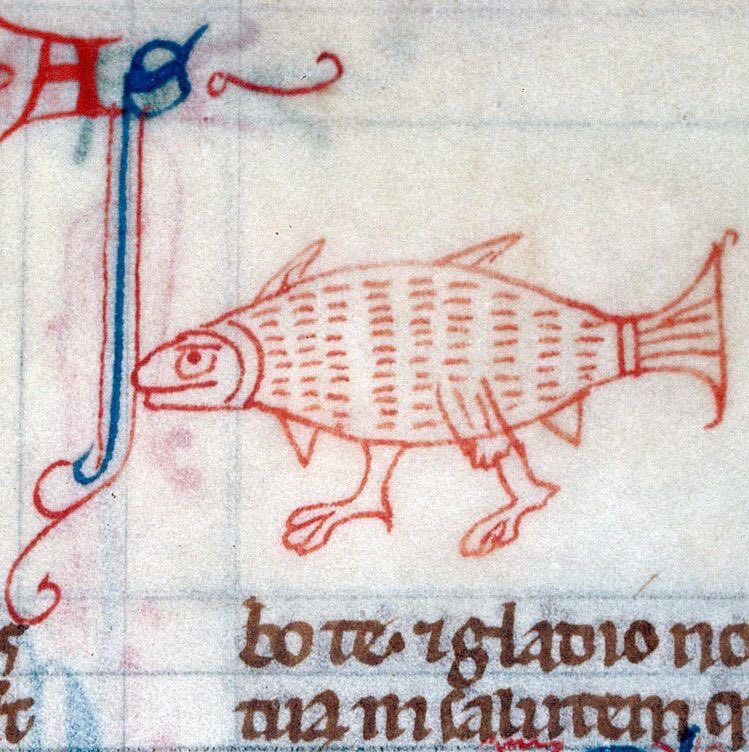 A S
s
st
bo te. ⁊ gladio no
tua in salutem q